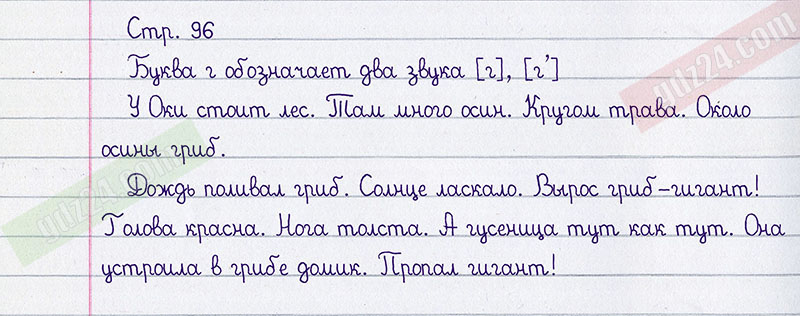 Стр. 96
Буква г обозначает два звука [г], [г']
У Оки стоит лес. Там много осин. Кругом трава. Около
осины гриб.
Дождь поливал гриб. Солнце ласкало. Вырос гриб-гигант!
Голова красна. Нога толста. А гусеница тут как тут. Она
устроила в грибе домик. Пропал гигант!
gdz24.com
gdz24.com